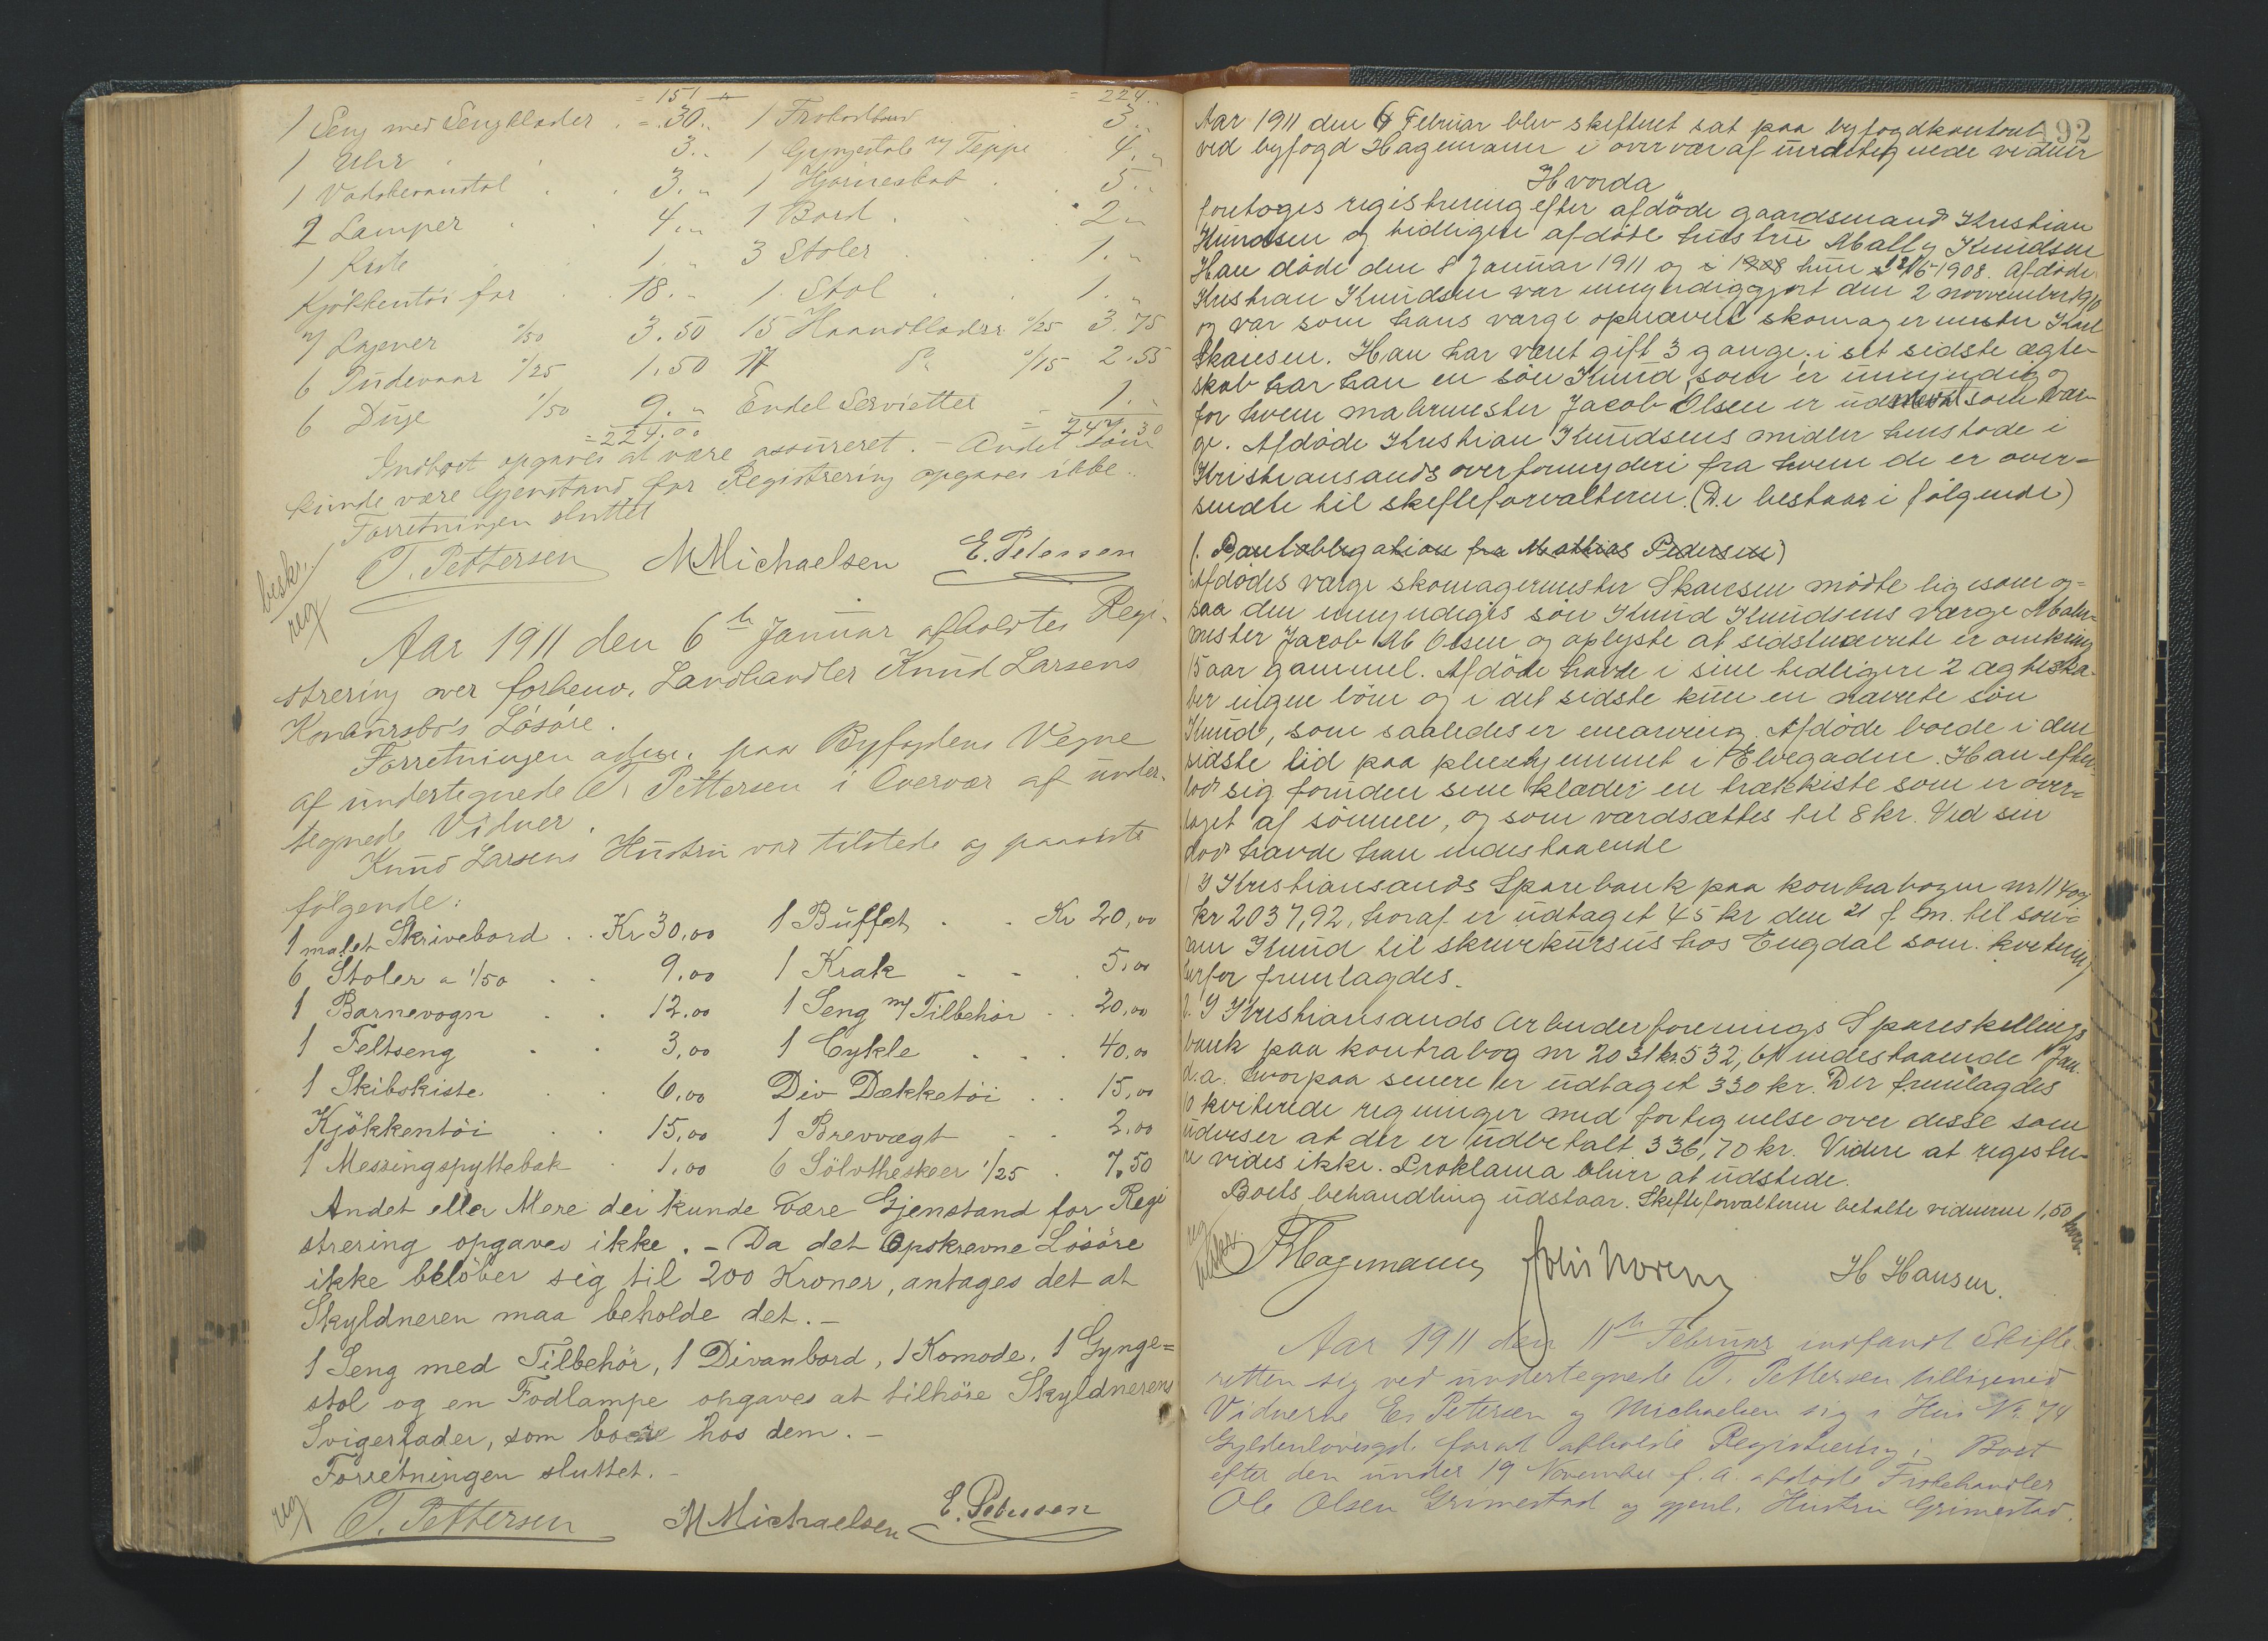 = 151 = 224 ..
1 Seng med Sengklæder . = 30 .. 1 Frokostbord 3 ..
1 Uhr 3 .. 1 Gyngestol m/ Teppe 4 ..
1 Vadskevandstol . . 3 .. 1 Hjørneskab . . 5 ..
2 Lamper 4 .. 1 Bord . . 2 ..
1 Kiste 1 .. 3 Stoler . . 1 ..
Kjökkentöi for . 18 .. 1 Stol . . 1 ..
7 Lagener 1/50 3.50 15 Haandklæder 0/25 3.75
6 Pudevaar 0/25 1.50 17 Do 0/15 2.55
6 Duge 1/50 9 .. Endel Servietter 1 ..
= 224.00 = 247.30
Indboet opgaves at være assureret. - Andet som
kunde være Gjenstand for Registrering opgaves ikke.
Forretningen sluttet
T. Pettersen M Michaelsen E. Petersen
beskr.
reg
Aar 1911 den 6te Januar afholdtes Regi-
strering over forhenv. Landhandler Knud Larsens
Konkursbo's Lösöre.
Forretningen adm. paa Byfogdens Vegne
af undertegnede T. Pettersen i Overvær af under-
tegnede Vidner.
Knud Larsens Hustru var tilstede og paaviste
følgende:
1 malet Skrivebord . . Kr 30,00 1 Buffet . . Kr 20,00
6 Stoler a 1/50 . . 9,00 1 Krak - - . 5,00
1 Barnevogn . . 12,00 1 Seng m/ Tilbehör . . 20,00
1 Feltseng . . 3,00 1 Cykle . . . 40,00
1 Skibskiste . . 6,00 Div Dækketöi . . 15,00
Kjökkentöi . . 15,00 1 Brevvægt - . 2,00
1 Messingspyttebak . 1,00 6 Sölvtheskeer 1/25 . 7,50
Andet eller Mere der kunde være Gjenstand for Regi
strering opgaves ikke. - Da det Opskrevne Lösöre
ikke belöber sig til 200 Kroner, antages det at
Skyldneren maa beholde det. -
1 Seng med Tilbehör, 1 Divanbord, 1 Komode, 1 Gynge=
stol og en Fodlampe opgaves at tilhöre Skyldnerens
Svigerfader, som boede hos dem. -
Forretningen sluttet. -
reg
T. Pettersen M Michaelsen E. Petersen
192
Aar 1911 den 6 Februar blev skifteret sat paa byfogdkontoret
ved byfogd Hagemann i overvær af undertegnede vidner
Hvorda
foretoges registrering efter afdöde gaardsmand Kristian
Knudsen og tidligere afdöde hustru Mally Knudsen
Han döde den 8 Januar 1911 og i 1908 hun 21/6 1908. Afdöde
Kristian Knudsen var umyndiggjort den 2 novvember 1910
og var som hans værge opnævnt skomagermester Karl
Skaiesen. Han har været gift 3 gange; i set sidste ægte-
skab har han en sön Knud, som er umyndig og
for hvem malermester Jacob Olsen er udnævnt som vær-
ge. Afdöde Kristian Knudsens midler henstode i
Kristiansands overformynderi fra hvem de er over-
sendte til skifteforvalteren. (De bestaar i fölgende)
1. Pantobligation fra Mathias Pedersen)
Afdödes værge skomagermester Skaiesen mödte ligesom og-
saa den umyndiges sön Knud Knudsens værge Maler-
mester Jacob M Olsen og oplyste at sidstnævnte er omkring
15 aar gammel. Afdöde havde i sine tidligere 2 ægteska-
ber ingen börn og i det sidste kun en nævnte sön
Knud, som saaledes er enearving. Afdöde boede i den
sidste tid paa pleiehjemmet i Elvegaden. Han efter-
lod sig foruden sine klæder en trækkiste som er over-
taget af sönnen, og som værdsættes til 8 kr. Ved sin
död havde han indestaaende
1 I Kristiansands Sparebank paa kontrabogen nr 11409
kr 2037,92, hvoraf er udtaget 45 kr den 21 f. m. til sön-
nen Knud til skrivekursus hos Engdal som kvitering
herfor fremlagdes.
2. I Kristiansands Arbeiderforenings Spareskillings
bank paa kontrabog nr 2031 kr. 532,61 indestaaende 1 Jan.
d.a. hvorpaa senere er udtaget 330 kr. Der fremlagdes
10 kviterede regninger med fortegnelse over desse som
udviser at der er udbetalt 336,70 kr. Videre at registre-
re vides ikke. Proklama bliver at udstede.
Boets behandling udstaar. Skifteforvalteren betalte vidnerne 1,50
hver.
reg
beskr.
F Hagemann H Hansen.
Aar 1911 den 11te Februar indfandt Skifte-
retten sig ved undertegnede T. Pettersen tilligemed
Vidnerne E. Petersen og Michaelsen sig i Hus No. 74
Gyldenlövesgd. forat afholde Registrering i Boet
efter den under 19 November f. A. afdöde Frøhandler
Ole Olsen Grimestad og gjenl. Hustru Grimestad.